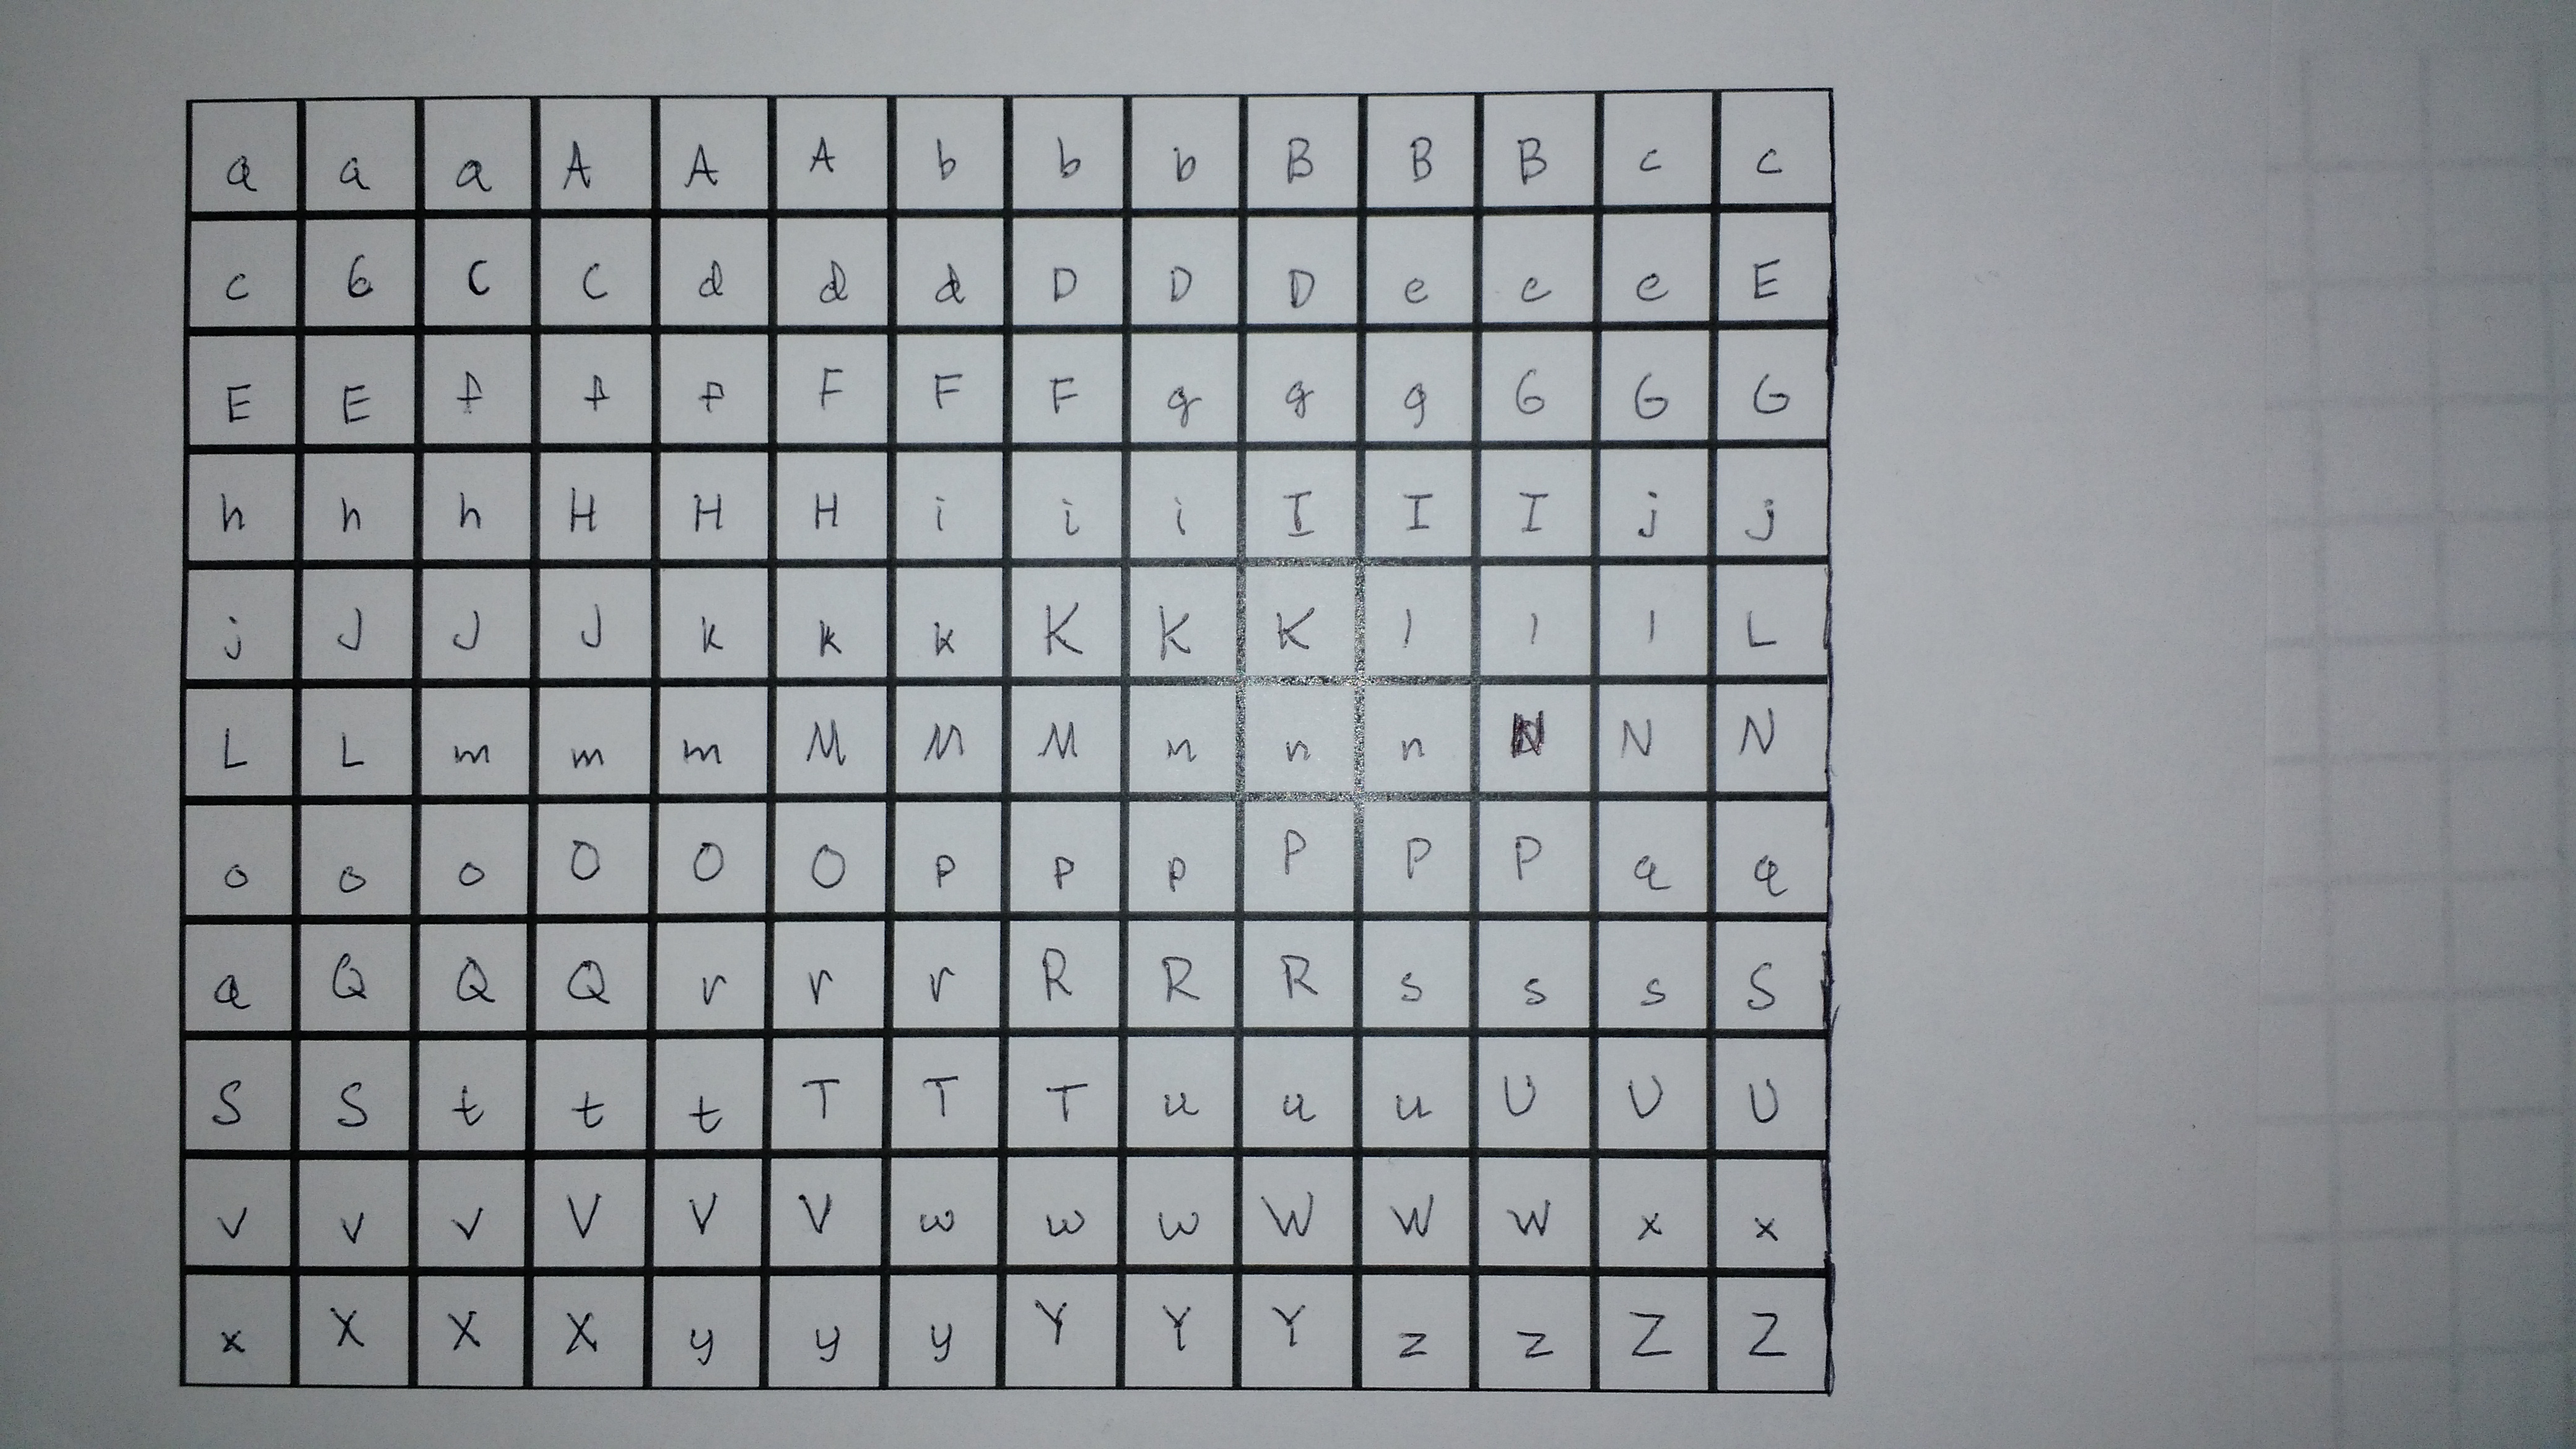 a a a A A A b b b B B B c c
c 6 C C d d d D D D e e e E
E E f f f F F F g g g G G G
h h h H H H i i i I I I j j
j J J J k k k K K K l l l L
L L m m m M M M n n n N N N
o o o O O O p p p P P P q q
q Q Q Q r r r R R R s s s S
S S t t t T T T u u u U U U
v v v V V V w w w W W W x x
x X X X y y y Y Y Y z z Z Z